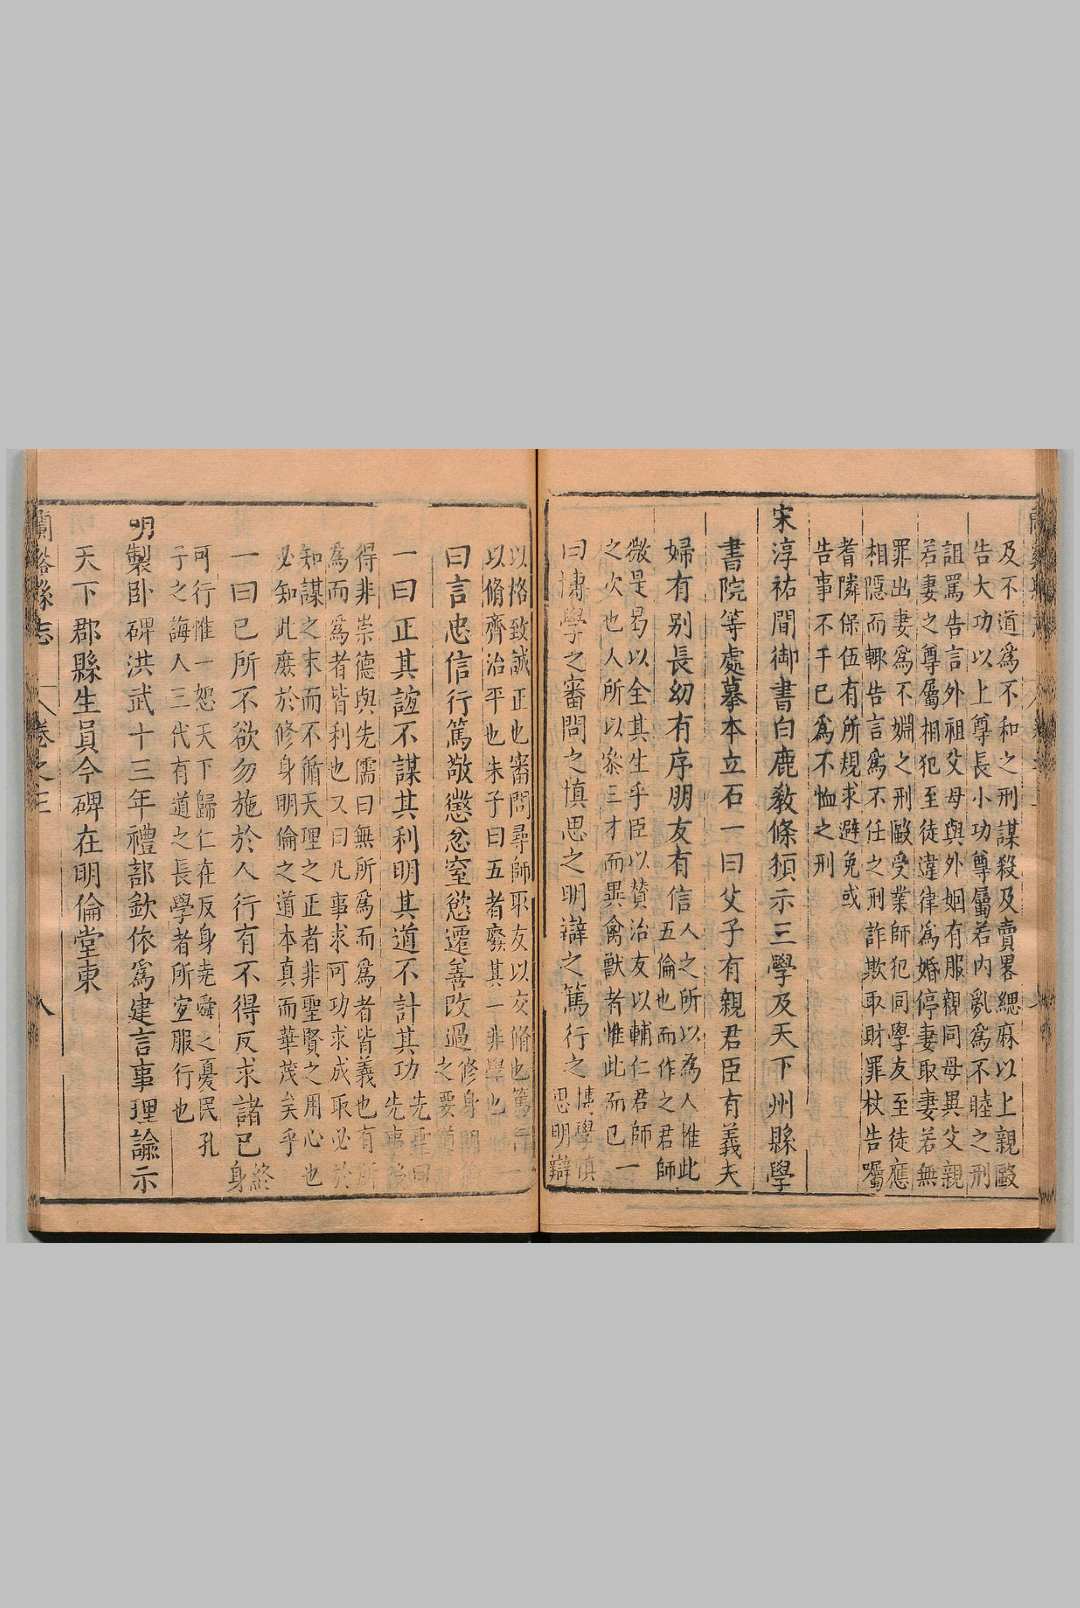 及不道爲不和之刑謀殺及賣畧緦麻以上親毆
告大功以上尊長小功尊屬若內亂爲不睦之刑
詛罵告言外祖父母與外姻有服親同母異父親
若妻之尊屬相犯至徒違律爲婚停妻取妻若無
罪出妻爲不婣之刑毆受業師犯同學友至徒應
相隱而輙告言爲不任之刑詐欺取財罪杖告囑
耆隣保伍有所規求避免或
告事不干已爲不恤之刑
宋淳祐間御書白鹿敎條頒示三學及天下州縣學
書院等處摹本立石一曰父子有親君臣有義夫
婦有别長幼有序朋友有信
人之所以為人惟此
五倫也而作之君師
微是曷以全其生乎臣以賛治友以輔仁君師
之次也人所以叅三才而異禽獸者惟此而已
一
曰博學之審問之慎思之明辯之篤行之
博學慎
思明辯
以格致誠正也審問尋師取友以交脩也篤行
以脩齊治平也朱子曰五者廢其一非學也
一
曰言忠信行篤敬懲忿窒慾遷善改過
修身明
之要
一曰正其誼不謀其利明其道不計其功
先
先事
得非崇德與先儒曰無所爲而爲者皆義也有所
爲而爲者皆利也又曰凡事求可功求成取必於
知謀之末而不循天理之正者非聖賢之用心也
必知此庶於修身明倫之道本真而華茂矣乎
一曰已所不欲勿施於人行有不得反求諸已
終
身
可行惟一恕天下歸仁在反身堯舜之憂民孔
子之誨人三代有道之長學者所宜服行也
明製卧碑洪武十三年禮部欽依爲建言事理諭示
天下郡縣生員今碑在明倫堂東
蘭谿縣志
卷之三
八